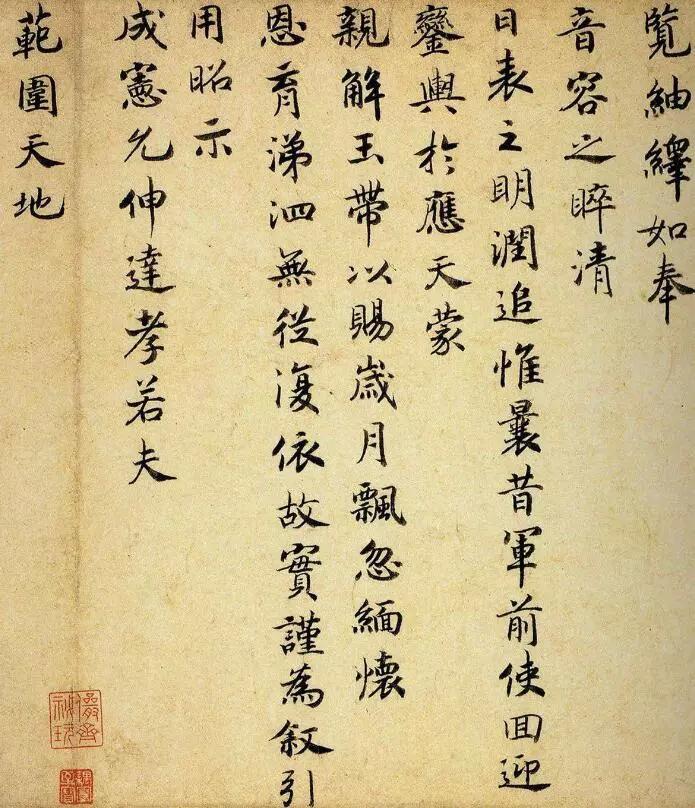 覽紬繹如奉
音容之睟清
日表之明潤追惟曩昔軍前使回迎
鑾輿於應天蒙
親解玉帶以賜歲月飄忽緬懷
恩育涕泗無從復依故實謹為叙引
用昭示
成憲允伸達孝若夫
範圍天地